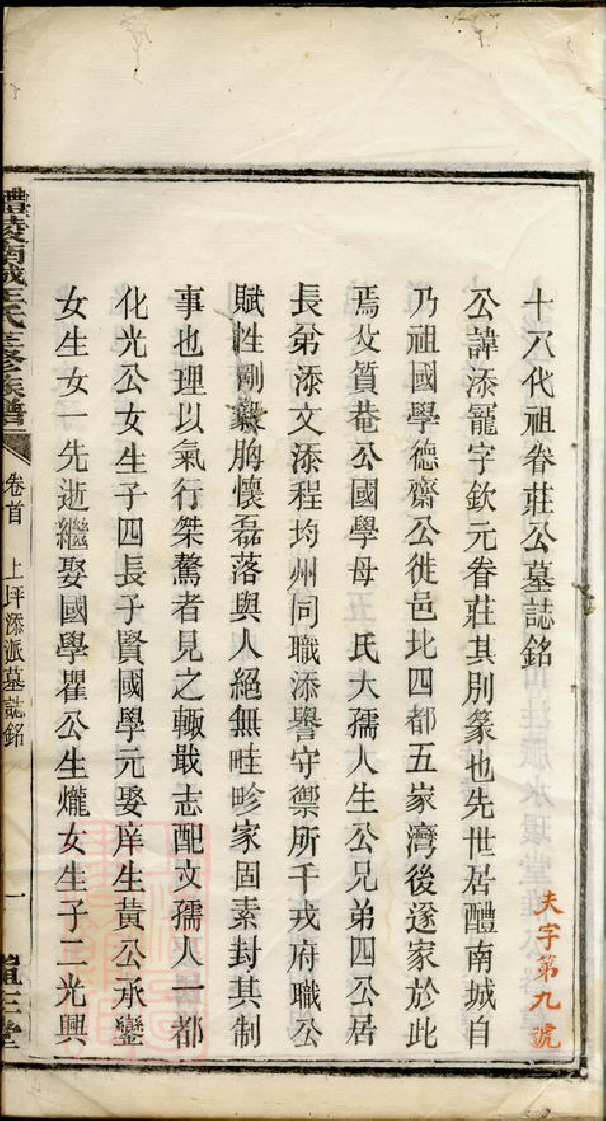 十八代祖眷莊公墓誌銘
公諱添寵字欽元眷莊其別篆也先世居醴南城自
乃祖國學德齋公徙邑北四都五家灣後遂家於此
焉父質菴公國學母　氏大孺人生公兄弟四公居
長弟添文添程均州同職添譽守禦所千戎府職公
賦性剛毅胸懷磊落與人絕無畦畛家固素封其制
事也理以氣行桀驁者見之輙戢志配文孺人一都
化光公女生子四長子賢國學元娶庠生黃公承鑾
女生女一先逝繼娶國學瞿公生爖女生子二光興
夫字第九號
醴陵南城王氏三修族譜
卷首　上坪添派墓誌銘
一
三堂